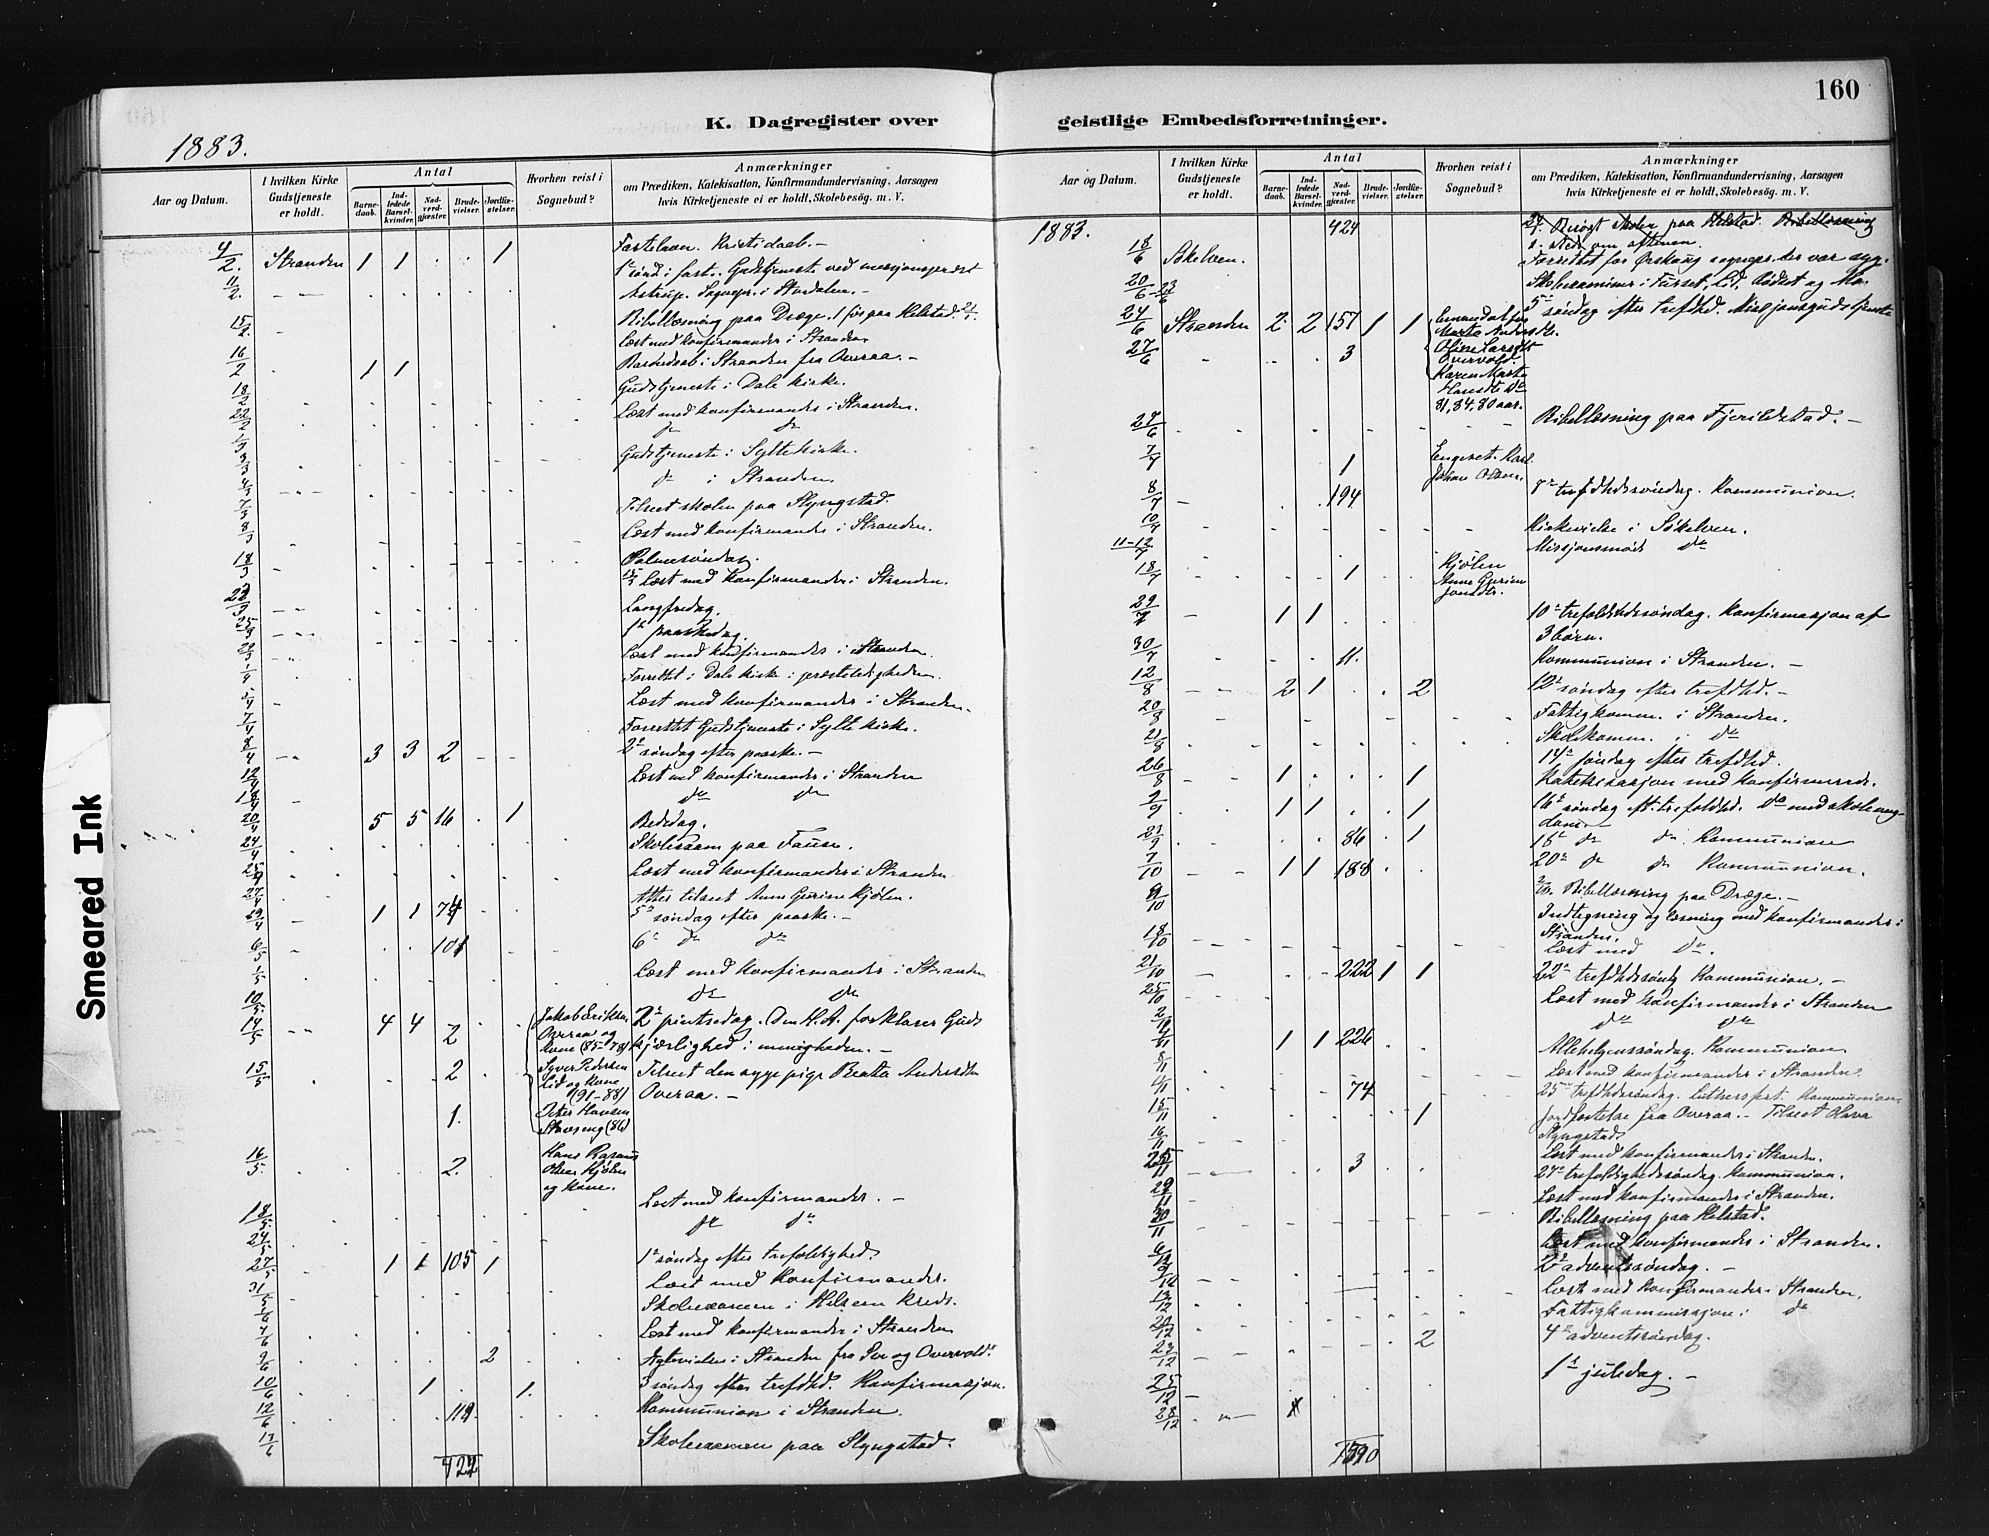 160
K. Dagregister over
geistlige Embedsforretninger.
1883.
Aar og Datum.
I hvilken Kirke Gudstjeneste er holdt.
Antal
Barne-daab.
Ind-ledede Barsel-kvinder.
Nad-verd-gjæster.
Brude-vielser.
Jordfæ-stelser.
Hvorhen reist i Sognebud?
Anmærkninger
om Prædiken, Katekisation, Konfirmandundervisning, Aarsagen
hvis Kirketjeneste ei er holdt, Skolebesøg. m. V.
4/2. Stranden 1 1 . . 1 Fastelavn. Kristi daab. –
11/2. 1ste sønd. i fast. Gudstjeneste ved
Astrup. Sognepr. i Stordalen. –
15/2. Bibellæsning paa Dræge, 1 før paa Helstad
Læst med konfirmander i Stranden
16/2 1 1 i Stranden fra Overaa. –
18/2 Gudstjeneste i Dale kirke.
22/2 Læst med konfirmander i Stranden.
1/3 do do
3/3 Gudstjeneste i Sylte kirke.
4/3 do i Stranden
7/3 Tilseet skolen paa Slyngstad.
8/3 Læst med konfirmander i Stranden.
18/3 Palmesøndag.
15/3 Læst med konfirmander i Stranden.
23/3 Langfredag.
25/3 1ste paaskedag.
29/3 Læst med konfirmander i Stranden.
1/4 Forrettet i Dale kirke i præsteledigheden.
5/4 Læst med konfirmander i Stranden.
7/4 Forrettet Gudstjeneste i Sylte kirke.
8/4 3 3 2 – – 2den søndag efter paaske. –
12/4 Læst med konfirmander i Stranden
do do
20/4 5 5 16 . 1 Bededag.
24/4 Skoleexam. paa Fause.
25/4 Læst med konfirmander i Stranden
27/4 Atter tilseet Anne Gurine Kjølen.
29/4 1 1 74 5te søndag efter paaske. –
6/5 101 6te do do
Læst med konfirmander i Stranden
10/5 do do
14/5 4 4 2 Jakob Eriksen Overaa og kone (85-78) 2den pintsedag. Den H. A. forklarer Guds
kjærlighed i menigheden. –
15/5 2 Syver Pedersen Lid og kone (91-88) Tilseet den syge pige Beatta Andersdtr
Overaa. –
1. Peter Hansen (86)
16/5 2. Hans Rasmus Olsen Kjølen og kone.
Læst med konfirmander. –
18/5
24/5 do do
27/5 1 1 105 1 1ste søndag efter trefoldighed
31/5 Læst med konfirmander.
Skoleexamen i kreds.
4/6 Læst med konfirmander i Stranden
9/6 2 i Stranden fra og Overvold.
10/6 1 1. 3 søndag efter trefdhd. Konfirmasjon.
12/6 119 Kommunion i Stranden.
13/6 Skoleexamen paa Slyngstad.
424
Aar og Datum.
I hvilken Kirke Gudstjeneste er holdt.
Antal
Barne-daab.
Ind-ledede Barsel-kvinder.
Nad-verd-gjæster.
Brude-vielser.
Jordfæ-stelser.
Hvorhen reist i Sognebud?
Anmærkninger
om Prædiken, Katekisation, Konfirmandundervisning, Aarsagen
hvis Kirketjeneste ei er holdt, Skolebesøg. m. V.
1883. 424 Besøgt skolen paa Helstad. Bibellæsning
s. sted om aftenen.
18/6 Søkelven. Forrettet for Ørskoug sognepr. der var syg.
20/6-23/6 Skoleexaminer i Furset, Lid, Rødset og Mo.
24/6 Stranden 2 2 157 1 1 5te søndag efter trefdhd. Missjonsgudstjeneste
27/6 3 Marta Andersdtr. Oline Larsdtr Overvold. Karen Marta Hansdtr do 81, 84, 80 aar.
27/6 Bibellæsning paa Fjerildstad. –
7/7 1 Engeset. Karl Johan Olsen.
8/7 194 7de trefdhdssøndag. Kommunion.
10/7 Kirkevielse i Søkelven.
11-12/7 Missjonsmøde do
18/7 1 Kjølen Anne Gurine Jonsdtr.
29/7 1 1 10de trefoldhedssøndag. Konfirmasjon af
3 børn.
30/7 11. Kommunion i Stranden. –
12/8 2 1 . . 2 12te søndag efter trefdhd. –
20/8 Fattigkomm. i Stranden.
21/8 Skolekomm. i do
26/8 1 1 14de søndag efter trefdhd.
Katekisasjon med konfirmerede.
9/9 1 1 1 16de søndag eft. trefoldhd. do med skoleung-
dom
86 1 18de do do Kommunion
7/10 1 1 188 20de do do Kommunion.
Bibellæsning paa Dræge. –
9/10 Indtegning og læsning med konfirmander i
Stranden.
18/10 Læst med do.
21/10 222 1 1 22de trefdhdssøndag Kommunion. –
25/10 Læst med konfirmander i Stranden
do do
4/11 1 1 226 Allehelgenssøndag. Kommunion
8/11 Læst med konfirmander i Stranden.
11/11 74 25de trefdhdssøndag. Luthersfest. Kommunion.
15/11 1 Jordfæstelse fra Overaa. – Tilseet
Slyngstad
16/11 Læst med konfirmander i Stranden.
25/11 3 27de trefoldighedssøndag. Kommunion.
29/11 Læst med konfirmander i Stranden.
30/11 Bibellæsning paa Helstad.
6/12 Læst med konfirmander i Stranden.
9/12 2den adventssøndag. –
13/12 Læst med konfirmander i Stranden.
20/12 Fattigkommissjon i do
23/12 2 4de adventssøndag.
25/12 1ste juledag. –
28/12
1590
Smeared Ink